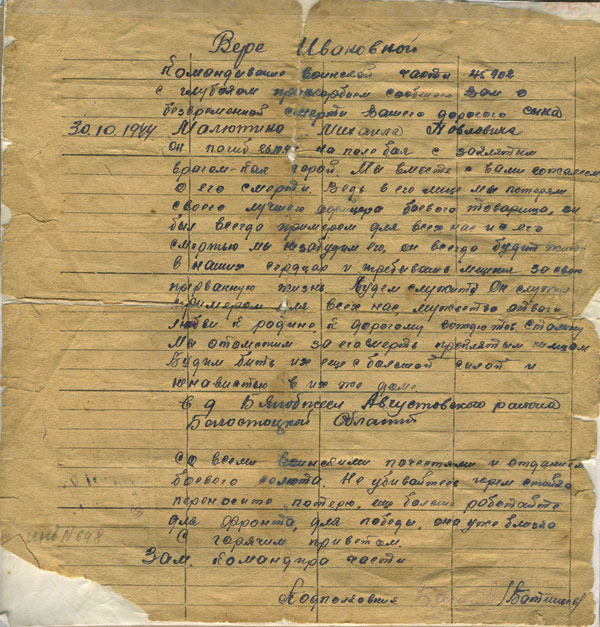 Вере Ивановной
Командивание воинской части 45902
с глубоким прискорбием сообщаем Вам о
безвременной смерти Вашего дорогого сына
30.10.1944. Малютина Михаила Павловича
Он погиб на поле боя с заклятым
врагом-как герой. Мы вместе с вами сожалеем
о его смерти. Ведь в его лице мы потеряли
своего лучшего офицера боевого товарища, он
был всегда примером для всех нас и с его
смертью мы незабудим его, он всегда будит жить
в наших сердцах и требывать мщения за свою
порванную жизнь. Будем служить Он служил
примером для всех нас, мужество отвага
любви к родине, к дорогому вождю тов. Сталину
Мы отомстим за его смерть проклятым немцам
Будим бить их еще с большой силой и
ненавистью в их же доме
в д Августовского района
Области
Со всеми воинскими почестями и отданием
боевого салюта. Не убивайтесь горем стойко
переносите потерю, еще больше работайте
для фронта, для победы, она уже близка
инв N 648
С горячим приветом.
Зам. командира части
Подполковник